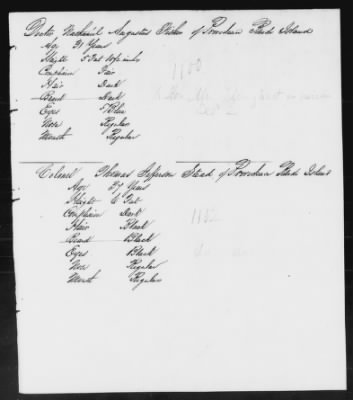 Doctor Nathaniel Augustus Fisher of Providence Rhode Island
Age 31 Years
Height 5 Feet inches
Complexion Fair
Hair Dark
Beard Dark
Eyes Blue
Nose Regular
Mouth Regular
1100
Colonel Thomas Jefferson Stead of Providence Rhode Island
Age 37 Years
Height 6 Feet
Complexion Dark
Hair Black
Beard Black
Eyes Black
Nose Regular
Mouth Regular
1102